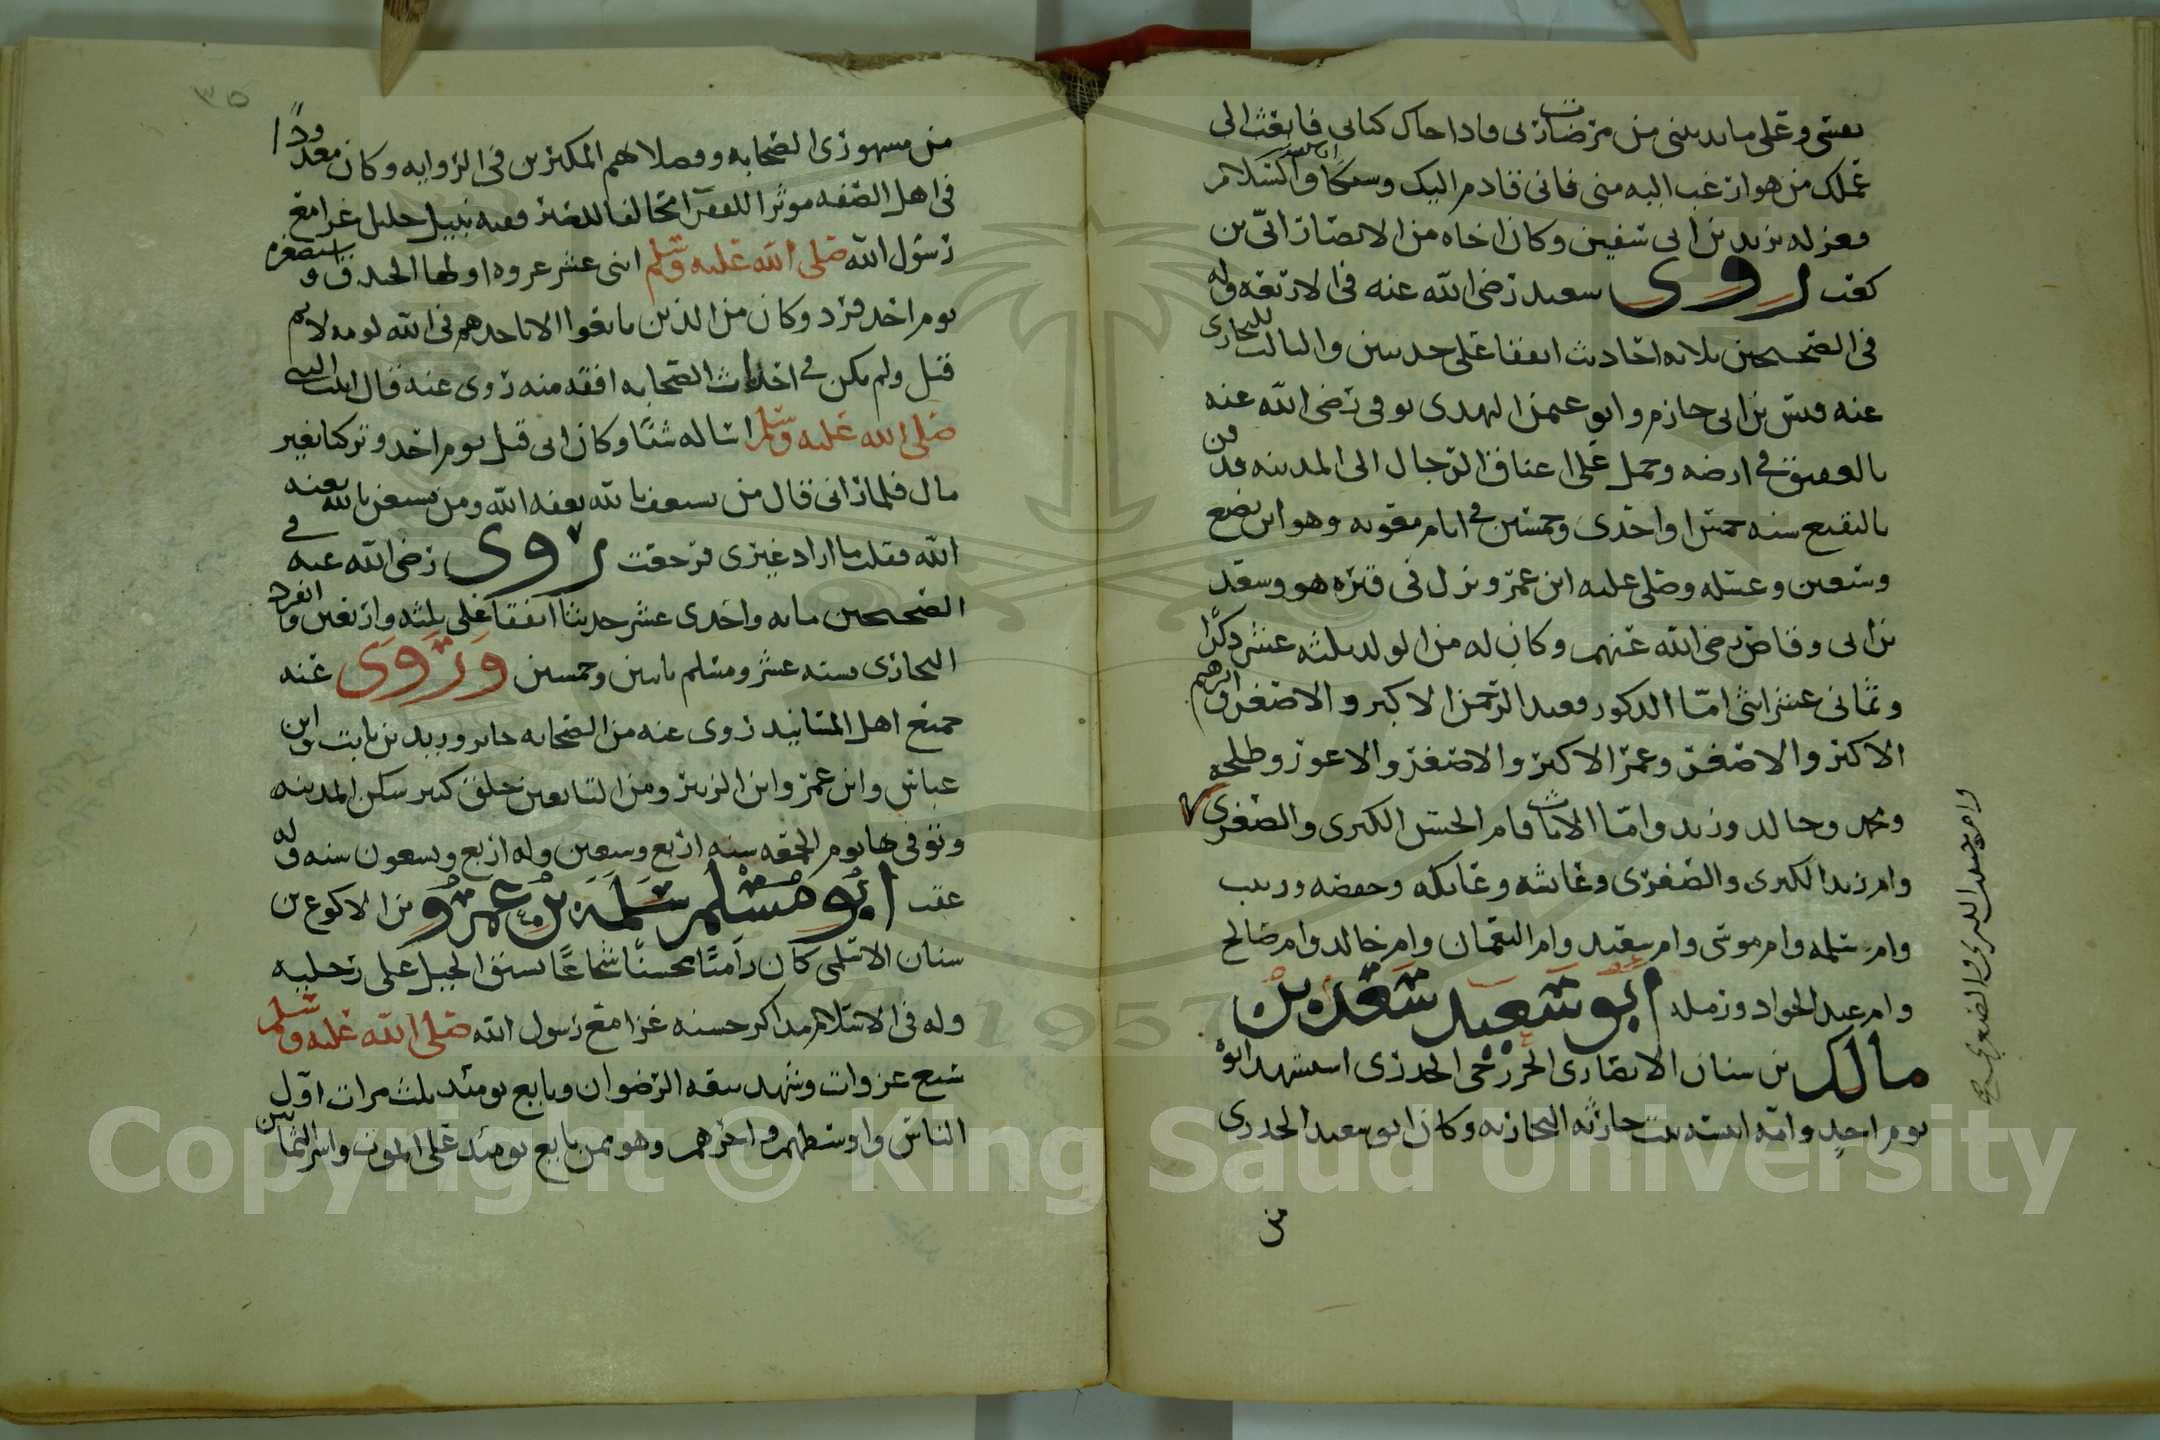 نفسي وعلى ما يدنيني من مرضات ربي فاذا جاك كتابي فابعث الى
عملك من هو ارغب اليه مني فاني قادم اليك وشيكا ان شا الله والسلام
فعزله يزيد بن ابي سفين وكان اخاه من الانصار ابي بن
كعب روى سعيد رضي الله عنه في الاربعه وله
في الصحيحين ثلاثه احاديث اتفقا على حديثين والثالث للبخاري
عنه قيس بن ابي حازم وابو عثمن النهدي توفي رضي الله عنه
بالعقيق في ارضه وحمل على اعناق الرجال الى المدينه فدفن
بالبقيع سنه خمس او احدى وخمسين في ايام معويه وهو ابن بضع
وسبعين وغسله وصلى عليه ابن عمر ونزل في قبره هو وسعد
بن ابي وقاص رضي الله عنهم وكان له من الولد ثلثه عشر ذكرا
وثماني عشر انثى امّا الذكور فعبد الرحمن الاكبر والاصغر وابرهيم
الاكبر والاصغر وعمر الاكبر والاصغر والاعور وطلحه
ومحمد وخالد وزيد وامّا الاناث فام الحسن الكبرى والصغرى
وام زيد الكبرى والصغرى وعائشه وعاتكه وحفصه وزينب
وام سلمه وام موسى وام سعيد وام النعمان وام خالد وام صالح
وام عبد الجواد وزمله ابو سعيد سعد بن
مالك بن سنان الانصاري الخزرجي الخدري استشهد ابوه
يوم احد وامّه انيسه بنت حارثه النجاريه وكان ابو سعيد الخدري
من
٣٥
من مشهوري الصحابه وفضلائهم المكثرين في الروايه وكان معدودًا
في اهل الصفه موثرا للفقر مخالفا للصبر فقيه نبيل جليل غزا مع
رسول الله صلى الله عليه وسلم اثنى عشر غزوه اولها الخندق واستصغره
يوم احد فرد وكان من الذين بايعوا الا تاخدهم في الله لومه لايم
قيل ولم يكن في احداث الصحابه افقه منه روى عنه قال اتيت النبي
صلى الله عليه وسلم اساله شيًا وكان ابي قتل يوم احد وتركنا بغير
مال فلما راني قال من يستعف بالله يعفه الله ومن يستغن بالله يغنه
الله فقلت ما اراد غيري فرجعت روى رضي الله عنه في
الصحيحين مايه واحدى عشر حديثا اتفقا على ثلثه واربعين وانفرد
البخاري بسته عشر ومسلم باثنين وخمسين وروى عنه
جميع اهل المسانيد روى عنه من الصحابه جابر وزيد بن ثابت وابن
عباس وابن عمر وابن الزبير ومن التابعين خلق كثير سكن المدينه
وتوفي بها يوم الجمعه سنه اربع وسبعين وله اربع وتسعون سنه وله
عقب ابو مسلم سلمه بن عمرو بن الاكوع بن
سنان الاسلمي كان راميًا محسنًا شجاعًا يسبق الخيل على رجليه
وله في الاسلام مداكر حسنه غزا مع رسول الله صلى الله عليه وسلم
سبع غزوات وشهد بيعه الرضوان وبايع يومئذ ثلث مرات اوّل
الناس واوسطهم واخرهم وهو ممن بايع يومئذ على الموت واسر الثمانين
Copyright © King Saud University
1957